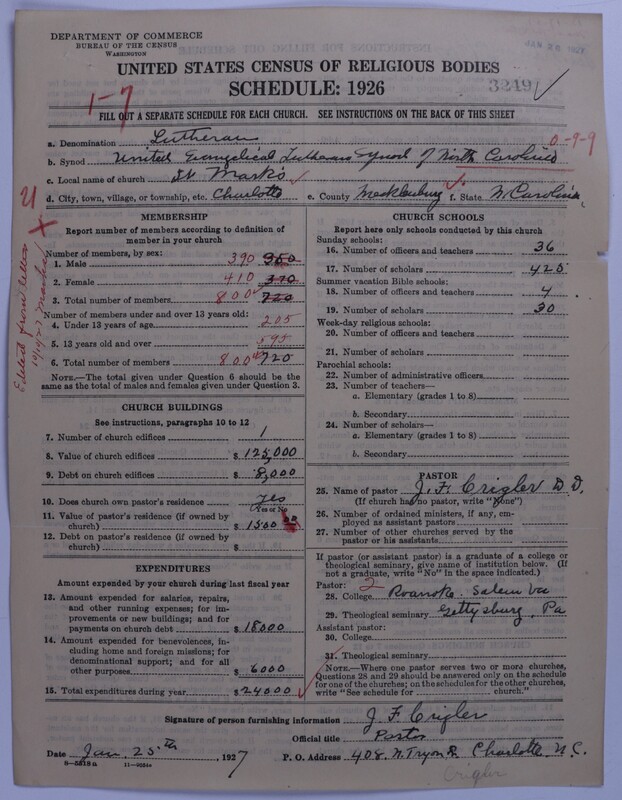 DEPARTMENT OF COMMERCE
BUREAU OF THE CENSUS
WASHINGTON
UNITED STATES CENSUS OF RELIGIOUS BODIES
SCHEDULE: 1926
3249
1-7
FILL OUT A SEPARATE SCHEDULE FOR EACH CHURCH. SEE INSTRUCTIONS ON THE BACK OF THIS SHEET
0-9-9
a. Denomination Lutheran
b. Synod United Evangelical Lutheran Synod of North Carolina
c. Local name of church St Mark's
d. City, town, village, or township, etc. Charlotte e. County Mecklenburg f. State N. Carolina
MEMBERSHIP
Report number of members according to definition of
member in your church
Number of members, by sex:
1. Male 390 350
2. Female 410 370
3. Total number of members 800 720
Number of members under and over 13 years old:
4. Under 13 years of age 205
5. 13 years old and over 595
6. Total number of members 800 720
NOTE.—The total given under Question 6 should be
same as the total of males and females given under Question 3.
CHURCH BUILDINGS
See instructions, paragraphs 10 to 12
7. Number of church edifices 1
8. Value of church edifices $ 125,000
9. Debt on church edifices $ 8,000
10. Does church own pastor's residence Yes
Yes or No
11. Value of pastor's residence (if owned by
church) $ 1500
12. Debt on pastor's residence (if owned by
church) $
EXPENDITURES
Amount expended by your church during last fiscal year
13. Amount expended for salaries, repairs,
and other running expenses; for im-
provements or new buildings; and for
payments on church debt $ 18000
14. Amount expended for benevolences, in-
cluding home and foreign missions; for
denominational support; and for all
other purposes $ 6000
15. Total expenditures during year $ 24000
CHURCH SCHOOLS
Report here only schools conducted by this church
Sunday schools:
16. Number of officers and teachers 36
17. Number of scholars 420
Summer vacation Bible schools:
18. Number of officers and teachers 4
19. Number of scholars 30
Week-day religious schools:
20. Number of officers and teachers
21. Number of scholars
Parochial schools:
22. Number of administrative officers
23. Number of teachers—
a. Elementary (grades 1 to 8)
b. Secondary
24. Number of scholars—
a. Elementary (grades 1 to 8)
b. Secondary
PASTOR
25. Name of pastor J. F. Crigler D. D.
(If church has no pastor, write "None")
26. Number of ordained ministers, if any, em-
ployed as assistant pastors
27. Number of other churches served by the
pastor or his assistants
If pastor (or assistant pastor) is a graduate of a college or
theological seminary, give name of institution below. (If
not a graduate, write "No" in the space indicated.)
Pastor: 2
28. College Roanoke. Salem Va
29. Theological seminary Gettysburg, Pa
Assistant pastor:
30. College
31. Theological seminary
NOTE.—Where one pastor serves two or more churches,
Questions 28 and 29 should be answered only on the schedule
for one of the churches; on the schedules for the other churches,
write "See schedule for church."
Signature of person furnishing information J. F. Crigler
Official title Pastor
Date Jan. 25th, 1927 P. O. Address 408 N. Tryon St Charlotte N. C.
8—5818a 11—9284a
Crigler